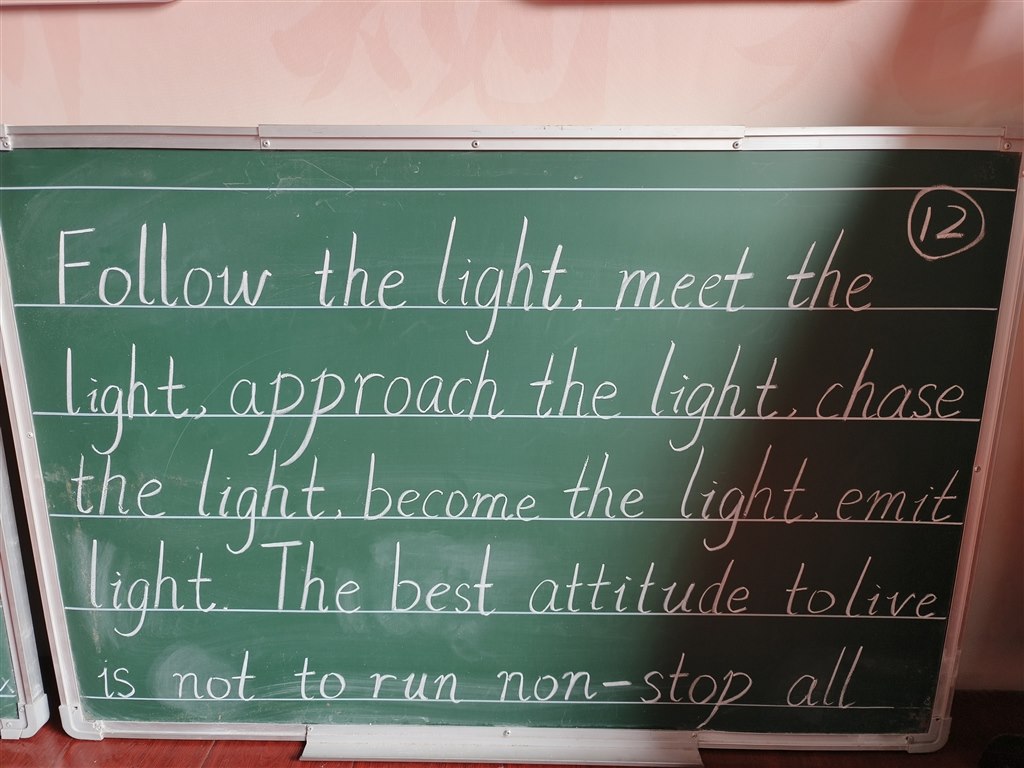 12
Follow the light, meet the
light, approach the light, chase
the light, become the light, emit
light. The best attitude to live
is not to run non-stop all